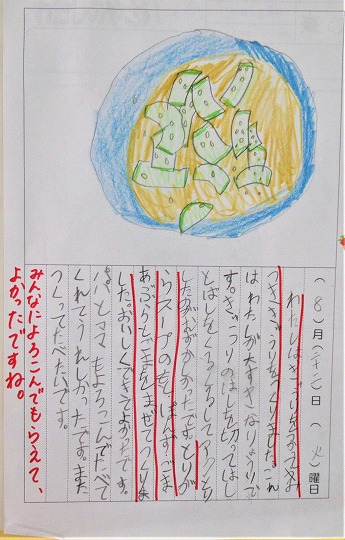 (8)月(二十二)日(火)曜日
わたしはきゅうりを
きゅうりをつくりました。これ
はわたしが大すきなりょうりで
す。きゅうりのはしを切ってはし
とはしをくるくるして、アクとり
したのがむずかしかったです。とりが
らスープの素、ぽんず、ごま
あぶらとごまをまぜてつくりま
した。おいしくできてよかったです。
パパとママもよろこんでたべて
くれてうれしかったです。また
つくってたべたいです。
みんなによろこんでもらえて、
よかったですね。